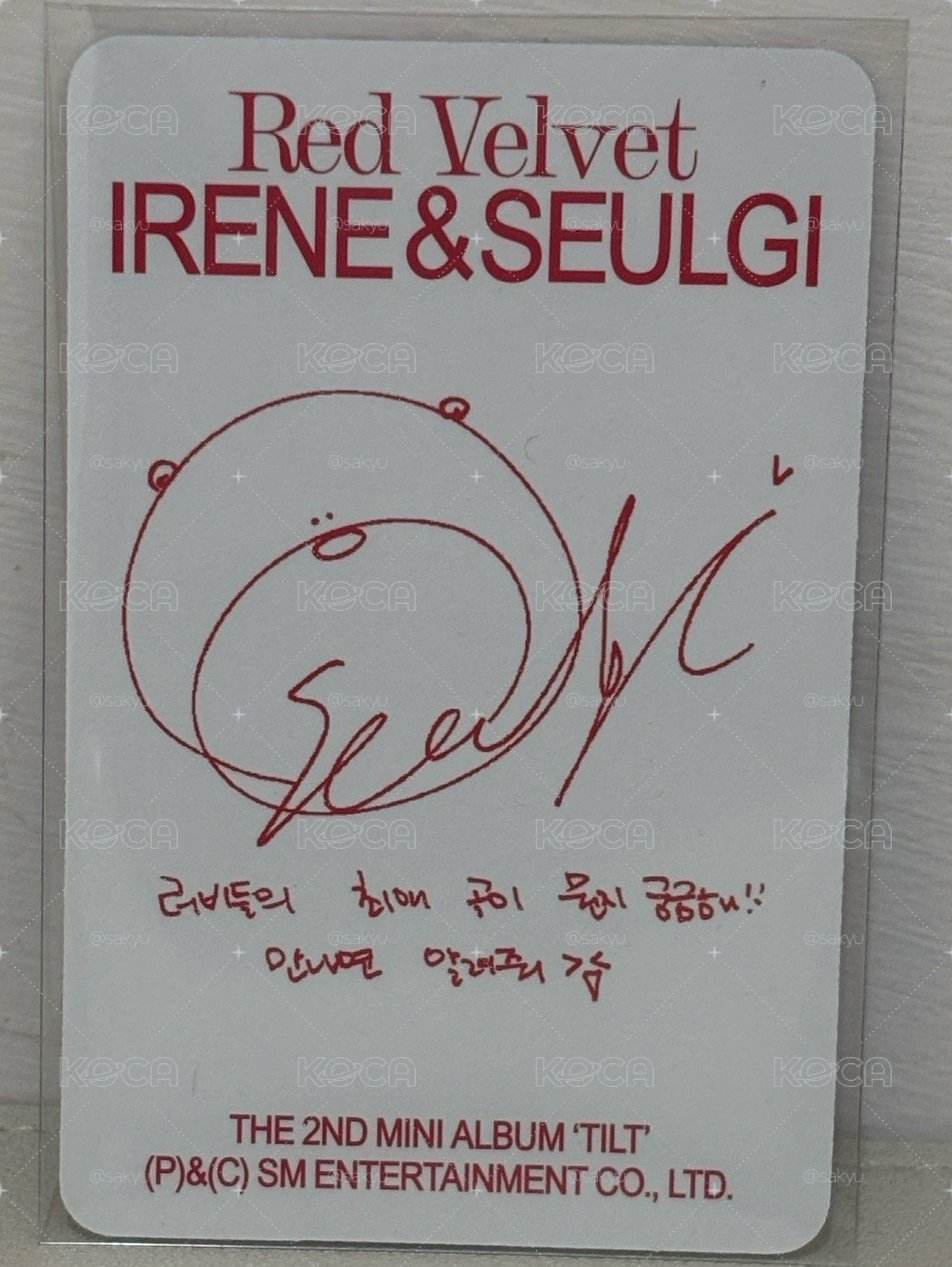 Red Velvet
IRENE & SEULGI
Seulgi
러비들의 최애 곡이 뭔지 궁금해!!
만나면 알려줘
THE 2ND MINI ALBUM ‘TILT’
(P)&(C) SM ENTERTAINMENT CO., LTD.
KOCA
@sakyu